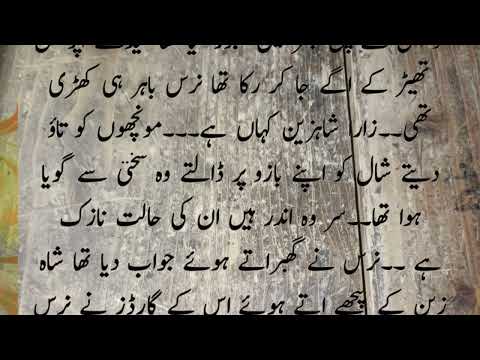 تھیڑ کے اگے جا کر رکا تھا نرس باہر ہی کھڑی
تھی۔۔زار شاہزین کہاں ہے۔۔۔مونچھوں کو تاؤ
دیتے شال کو اپنے بازو پر ڈالتے وہ سختی سے گویا
ہوا تھا۔۔سر وہ اندر ہیں ان کی حالت نازک
ہے ۔۔نرس نے گھبراتے ہوئے جواب دیا تھا شاہ
زین کے پیچھے اتے ہوئے اس کے گارڈز نے نرس